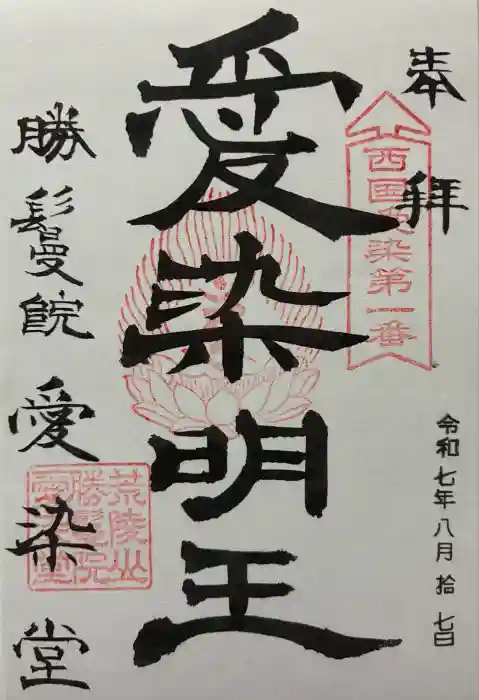 奉拝
西国愛染第一番
令和七年八月拾七日
愛染明王
勝鬘院愛染堂
荒陵山
勝鬘院
愛染堂